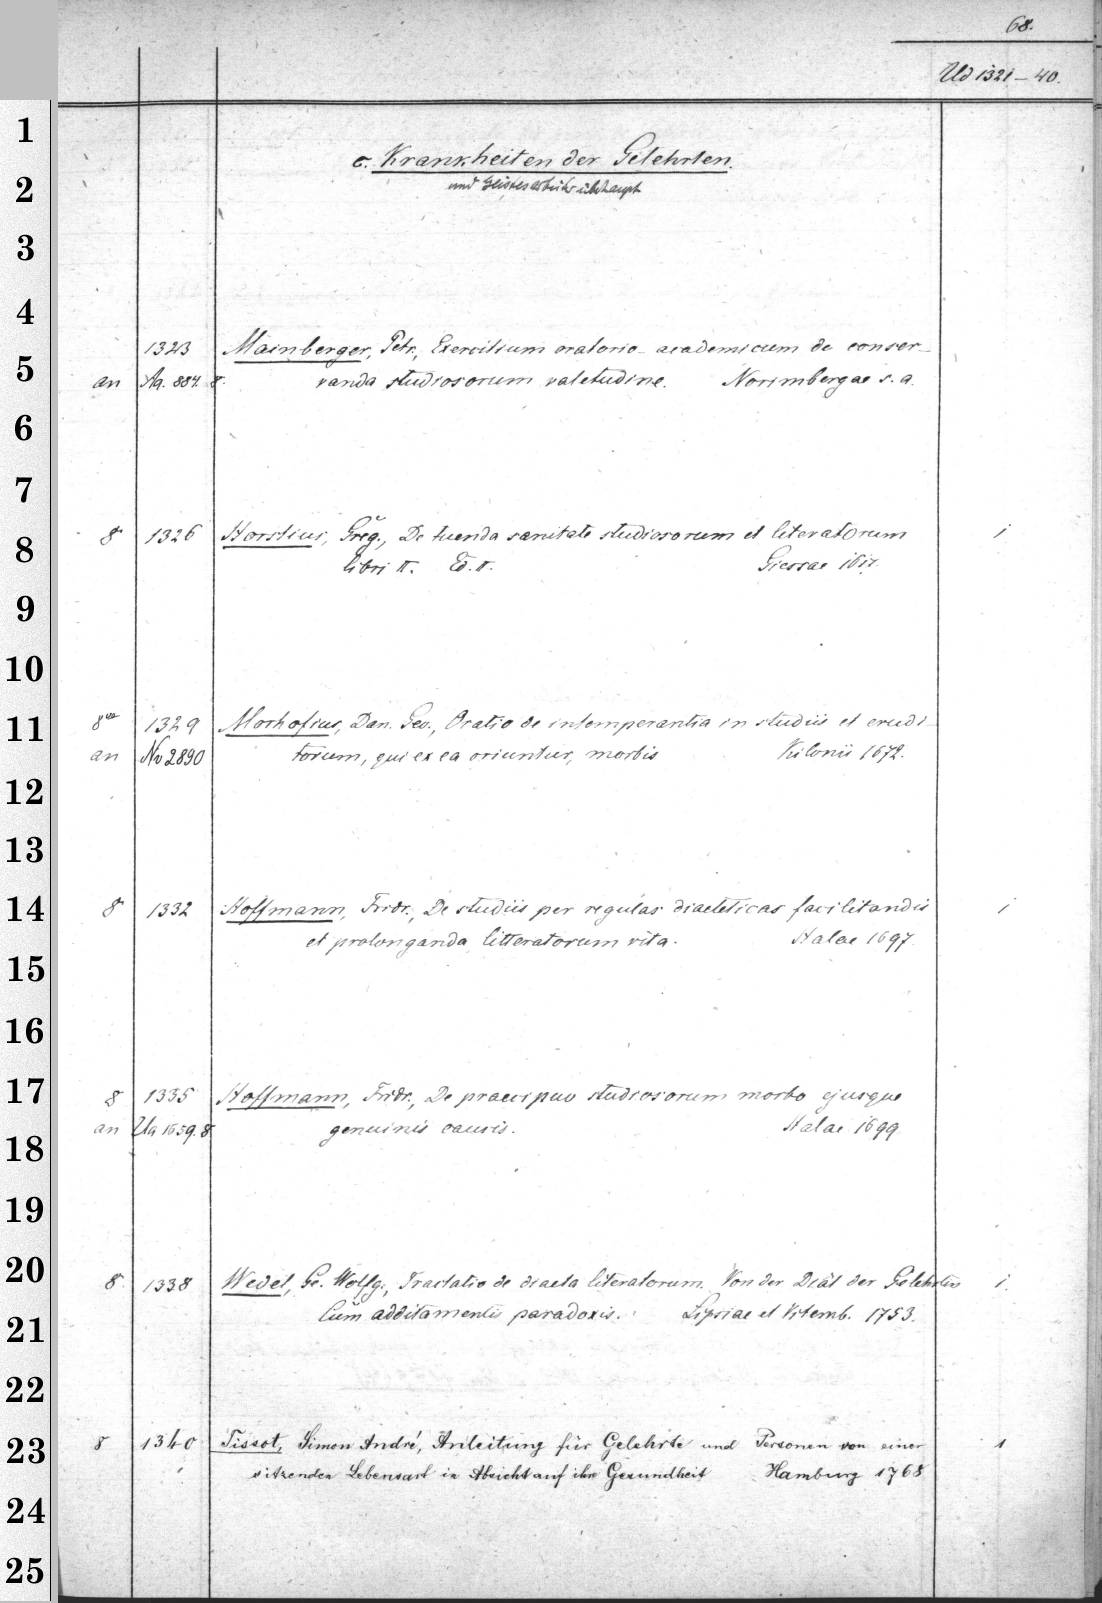 68.
Ud 1321-40.
1
c. Krankheiten der Gelehrten.
2
und Geistesarbeiter überhaupt
3
4
1323 Mainberger, Petr., Exercitium oratorio-academicum de conser-
5
an Aa. 884. 8. vanda studiosorum valetudine. Norimbergae s. a.
6
7
8 1326 Horstius, Greg., De tuenda sanitate studiosorum et literatorum 1
8
libri II. Ed. II. Giessae 1617.
9
10
11
8vo 1329 Morhofius, Dan. Geo., Oratio de intemperantia in studiis et erudi-
an Nv 2890 torum, qui ex ea oriuntur, morbis Kilonii 1672.
12
13
14
8 1332 Hoffmann, Fridr., De studiis per regulas diaeteticas facilitandis 1
et prolonganda litteratorum vita. Halae 1697.
15
16
17
8 1335 Hoffmann, Fridr., De praecipuo studiosorum morbo ejusque
an Ua 1659. 8. genuinis causis. Halae 1699
18
19
20
8. 1338 Wedel, Ge. Wolfg., Tractatio de diaeta literatorum. Von der Diät der Gelehrten 1.
Cum additamentis paradoxis. Lipsiae et Vitemb. 1753.
21
22
23
8 1340 Tissot, Simon André, Anleitung für Gelehrte und Personen von einer 1
sitzenden Lebensart in Absicht auf ihre Gesundheit Hamburg 1768
24
25